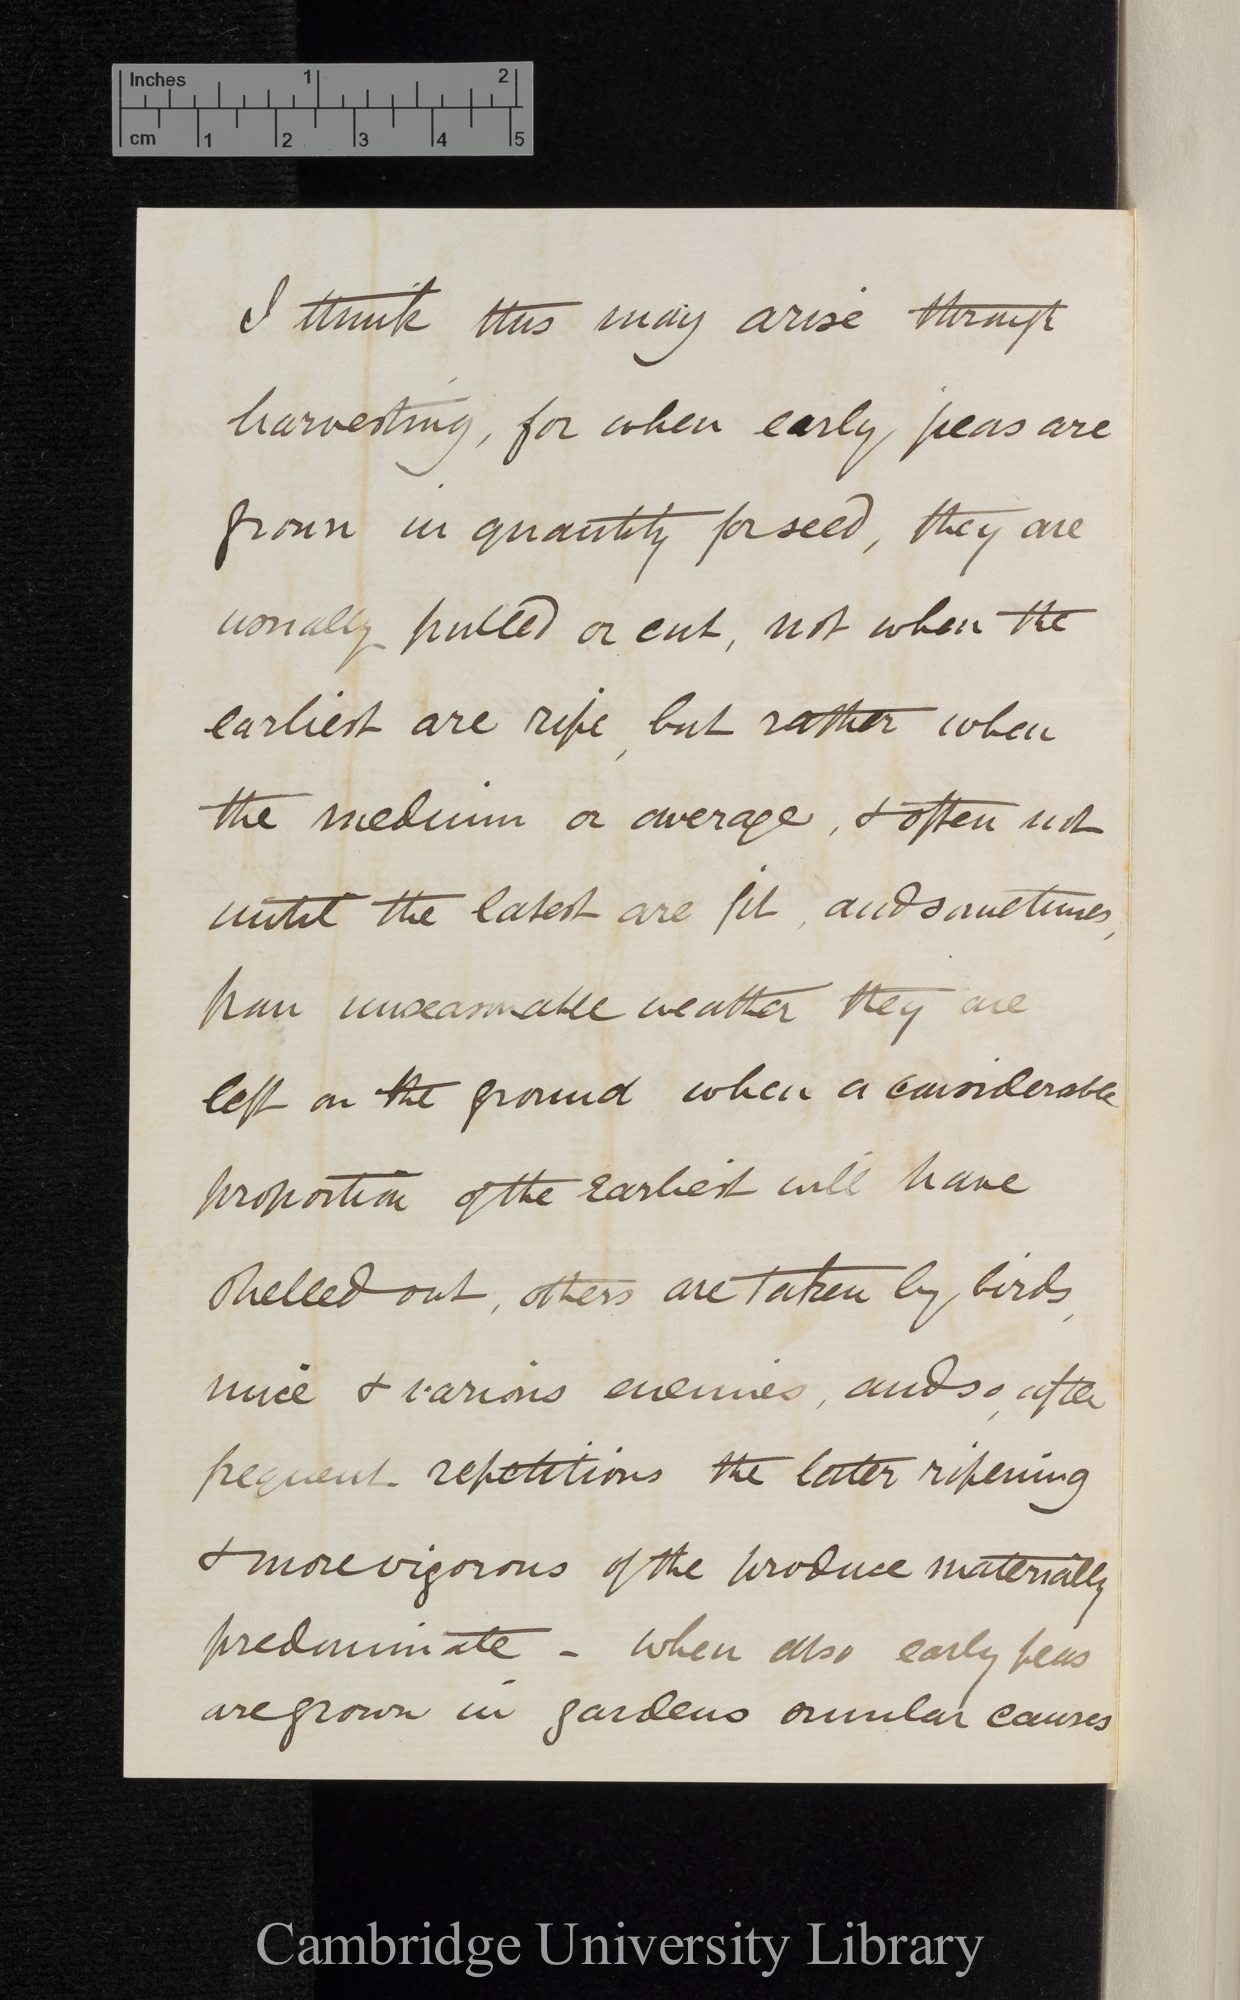 Inches 1 2
cm 1 2 3 4 5
I think this may arise through
harvesting, for when early peas are
grown in quantity for seed, they are
usually pulled or cut, not when the
earliest are ripe, but rather when
the medium or average, & often not
until the latest are fit, and sometimes,
from unseasonable weather they are
left on the ground when a considerable
proportion of the earliest will have
shelled out, others are taken by birds,
mice & various enemies, and so, after
frequent repetitions the later ripening
& more vigorous of the produce materially
predominate – when also early peas
are grown in gardens similar causes
Cambridge University Library